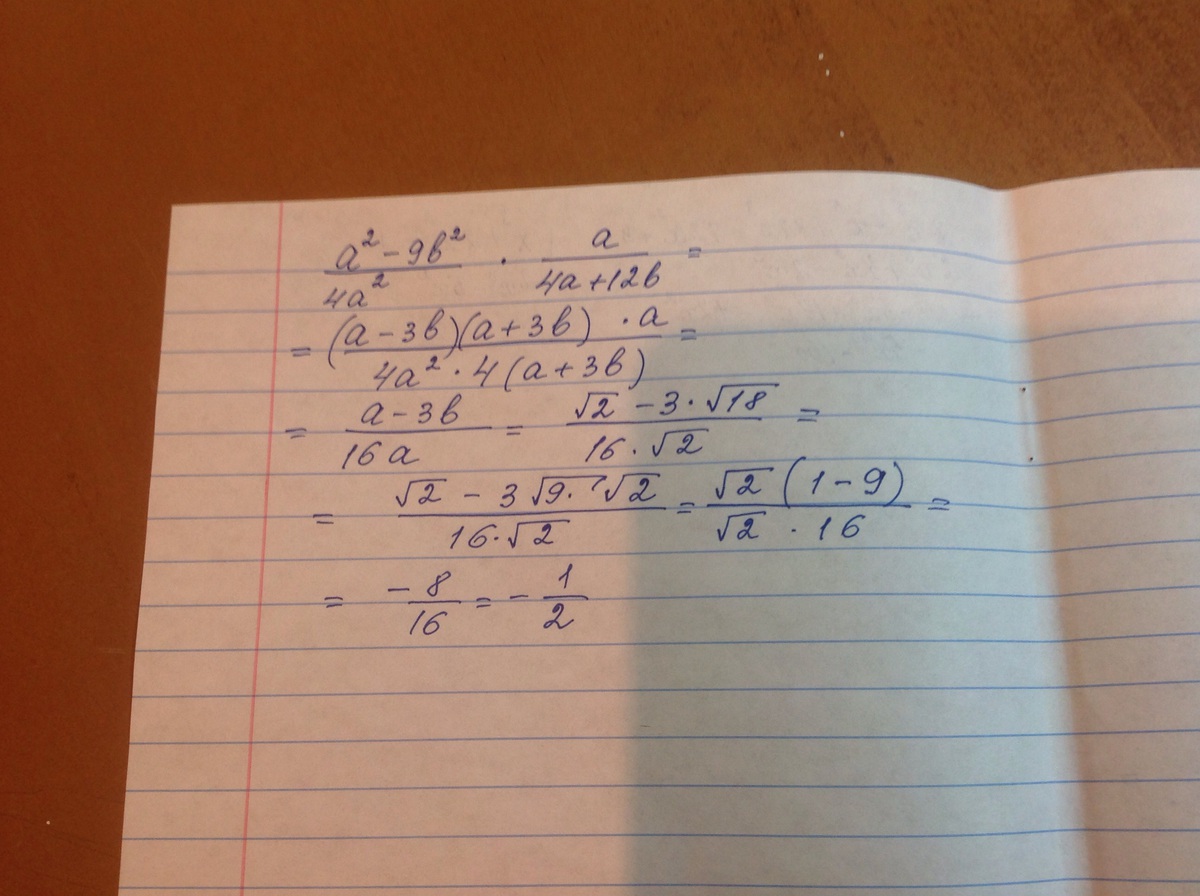 (a² - 9b²)/(4a²) · a/(4a + 12b) =
= ((a - 3b)(a + 3b) · a)/(4a² · 4(a + 3b)) =
= (a - 3b)/(16a) = (√2 - 3 · √18)/(16 · √2) =
= (√2 - 3√9 · √2)/(16 · √2) = (√2 (1 - 9))/(√2 · 16) =
= (-8)/16 = - 1/2